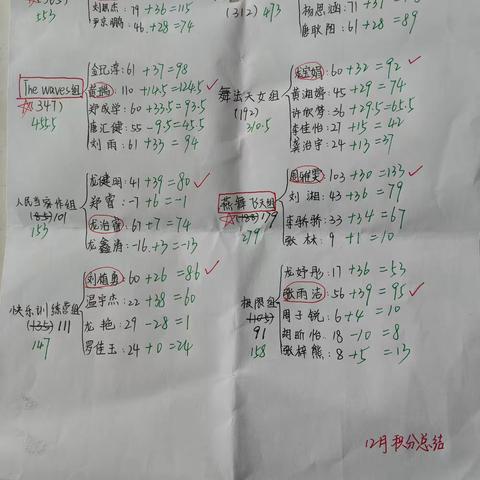 553
79 + 36 = 115
46 + 28 = 74
(312) 473
杨思涵: 71 +
唐耿阳: 61 +28 = 89
The waves组
(347)
455.5
61 + 37 = 98
110 + 14.5 = 124.5
郑成学: 60 + 33.5 = 93.5
唐汇健: 55 - 9.5 = 45.5
刘雨: 61 + 33 = 94
舞法天女组
(192)
310.5
60 + 32 = 92
黄湘婷: 45 + 29 = 74
许欣梦: 36 + 29.5 = 65.5
李佳怡: 27 + 15 = 42
龚治宇: 24 + 13 = 37
人民当家作组
101
153
龙健明: 41 + 39 = 80
郑睿: -7 + 6 = -1
67 + 7 = 74
龙鑫涛: -16 + 3 = -13
燕舞飞天组
179
279
103 + 30 = 133
刘湘: 43 + 36 = 79
李骄骄: 33 + 34 = 67
张林: 9 + 1 = 10
快乐训练营组
(135) 111
147
60 + 26 = 86
温宇杰: 22 + 38 = 60
龙艳: 29 - 28 = 1
罗佳玉: 24 + 0 = 24
极限组
(105)
91
158
龙妤彤: 17 + 36 = 53
张雨洁: 56 + 39 = 95
周子锐: 6 + 4 = 10
胡昕怡: 18 - 10 = 8
张梓熊: 8 + 5 = 13
12月积分总结